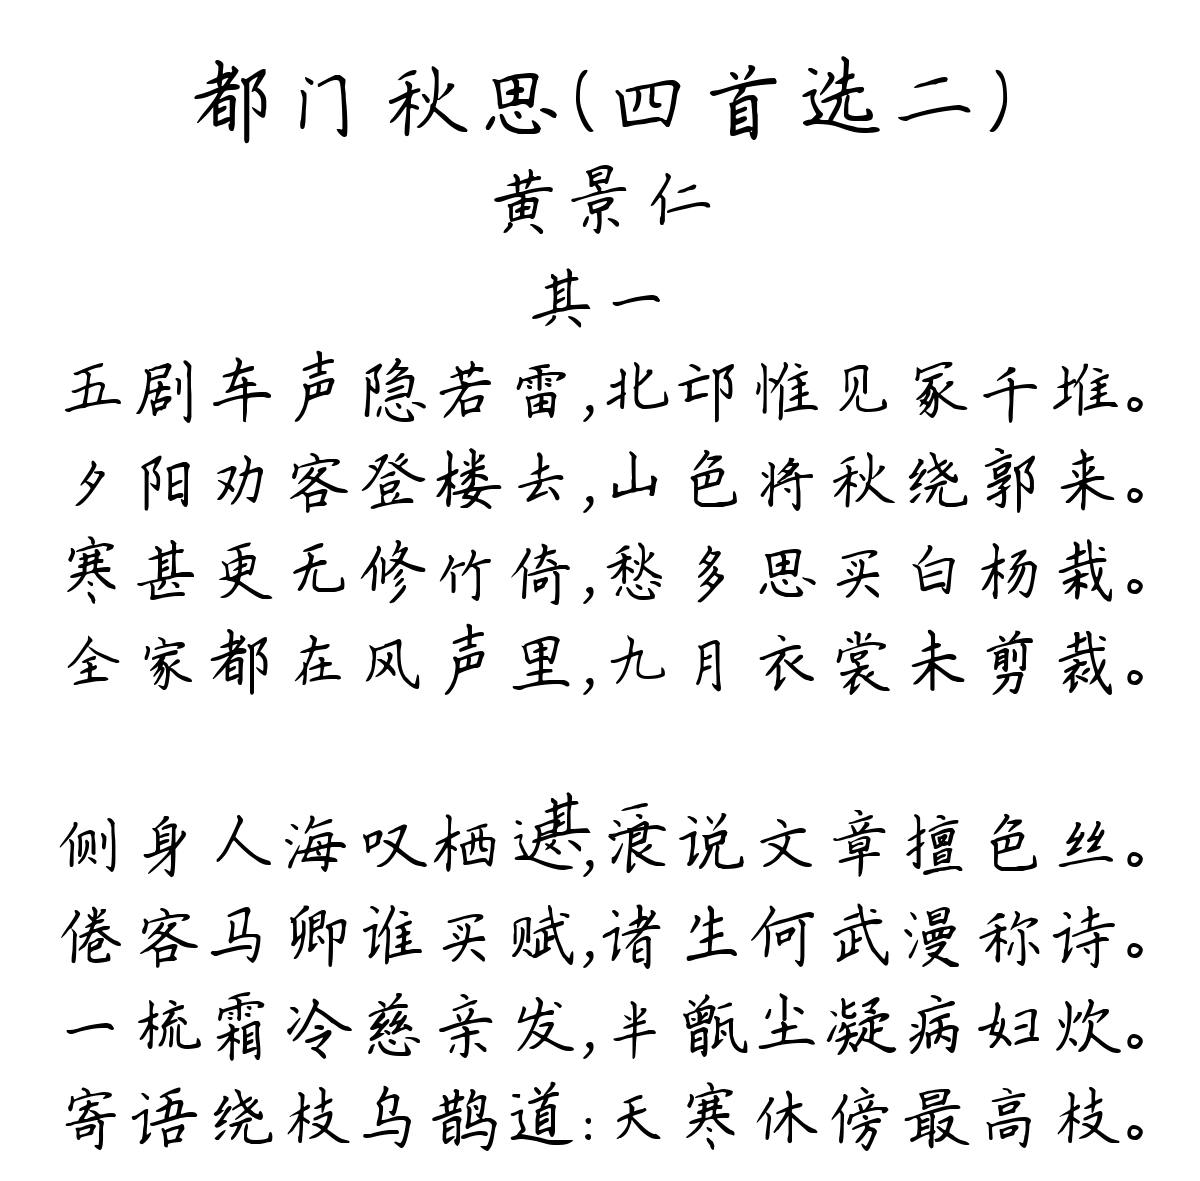 都门秋思(四首选二)
黄景仁
其一
五剧车声隐若雷,北邙惟见冢千堆。
夕阳劝客登楼去,山色将秋绕郭来。
寒甚更无修竹倚,愁多思买白杨栽。
全家都在风声里,九月衣裳未剪裁。
其二
侧身人海叹栖迟,浪说文章擅色丝。
倦客马卿谁买赋,诸生何武漫称诗。
一梳霜冷慈亲发,半甑尘凝病妇炊。
寄语绕枝乌鹊道:天寒休傍最高枝。